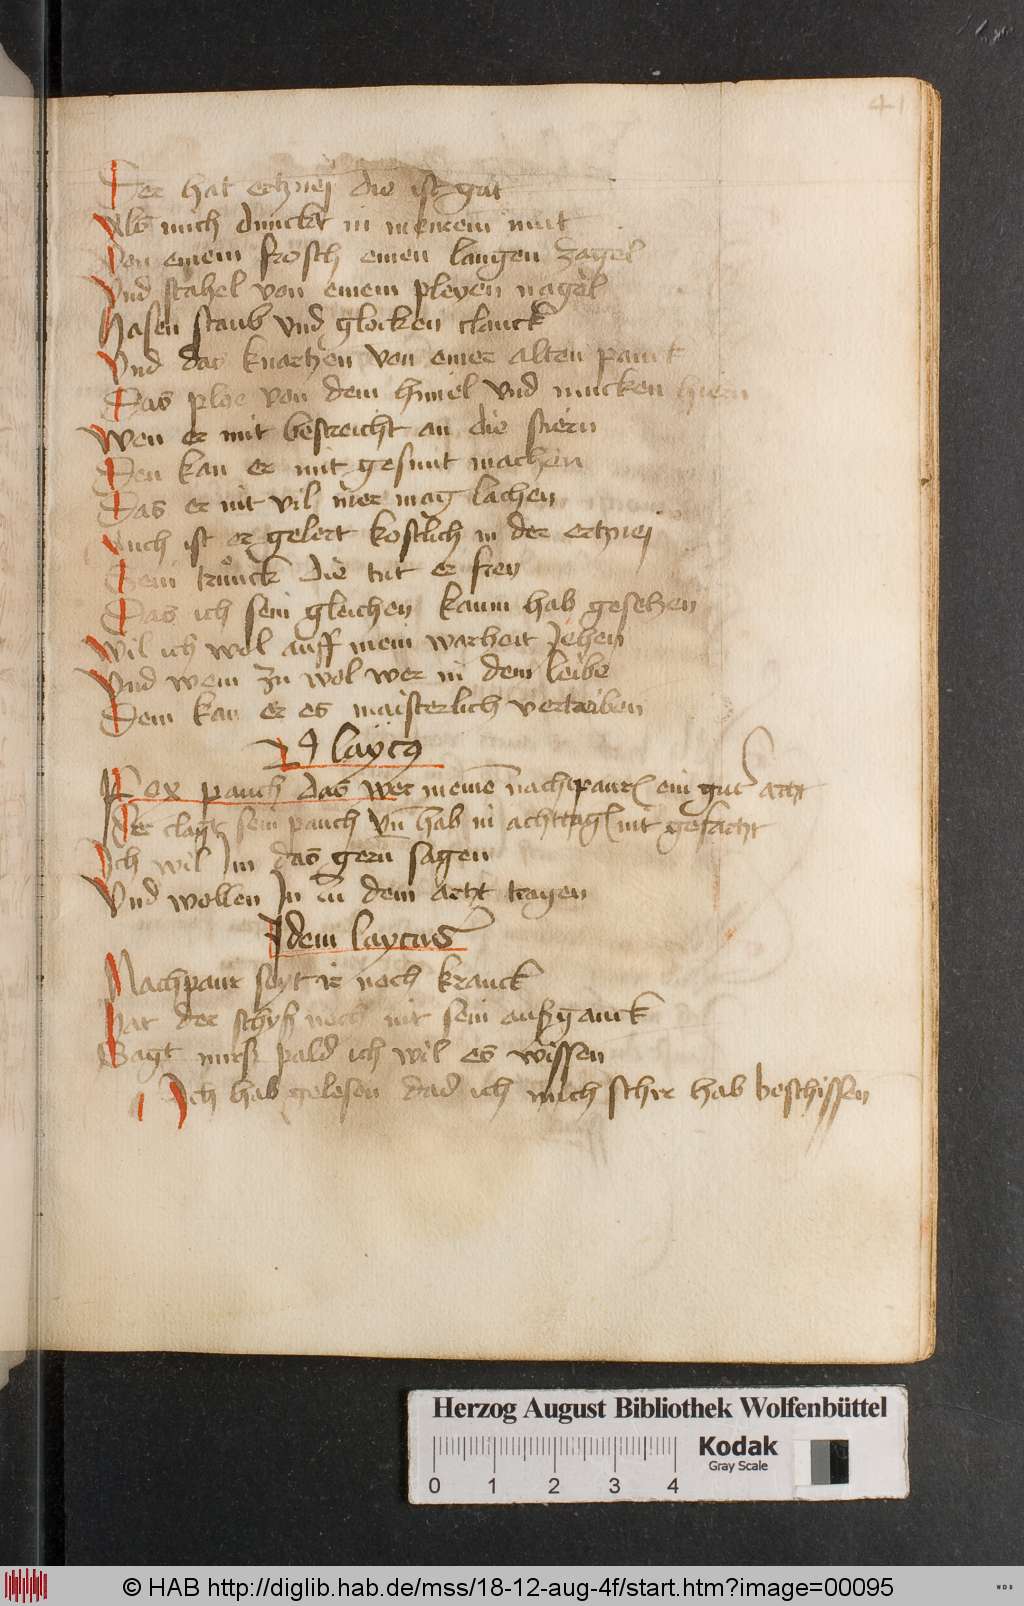 41
Der hat ertzneÿ die ist gut
Als mich dunckt in meinem mut
Von einem frosch einen langen zagel
Vnd stahel von einem pleyen nagel
Hasen staub vnd glocken clanck
Vnd das knartzen von einer alten panck
Das ploe von dem himel vnd mucken hiern
Wen er mit bestreicht an die stiern
Den kan er mit gesunt machen
Das er nit vil mer mag lachen
Auch ist er gelert kostlich in der ertzneÿ
Sein trunck die tut er frey
Das ich sein gleichen kaum hab gesehen
Wil ich wol auff mein warheit Jehen
Vnd wem zu wol wer in dem leibe
Dem kan er es maisterlich vertreiben
laÿcus
Pox pauch das wer meinē nachtpaurn ein gut artzt
Der clagt sein pauch vn̄ hab in achttagn nit gefartzt
Ich wil Im das gern sagen
Vnd wollen In zu dem artzt tragen
Idem laycus
Nachpaur seyt ir noch kranck
Hat der schyß noch nit sein außganck
Sagt mirß pald ich wil es wissen
Ich hab gelesen das ich mich schir hab beschissen
Herzog August Bibliothek Wolfenbüttel
0 1 2 3 4
Kodak
Gray Scale
© HAB http://diglib.hab.de/mss/18-12-aug-4f/start.htm?image=00095